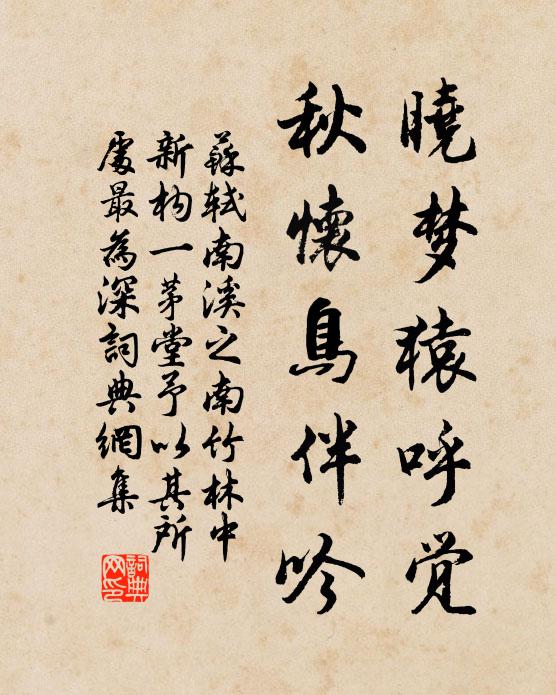 曉梦猿呼觉
秋懷鳥伴吟
蘇軾南溪之南竹林中
新构一茅堂予以其所
處最為深詞典網集
詞典
网印